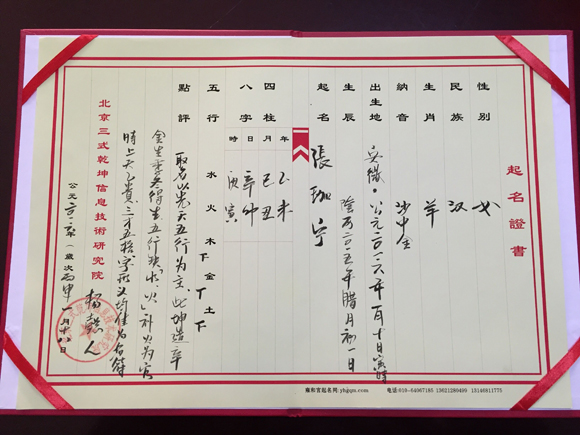 起名證書
性別 女
民族 汉
生肖 羊
納音 沙中金
出生地 安徽。公元二0一六年一月十日寅時
生辰 陰历二0一五年腊月初一日
起名 張珈宁
四柱
年 乙未
月 己丑
八字
日 辛卯
時 庚寅
五行 水 火 木 金 土
點評 取名以先天五行为主,此坤造辛
金生季冬得生五行缺 以补火为宜
時上天乙貴三才五格字形义均佳为吉祥
北京三式乾坤信息技術研究院 杨懿人
公元二0一六年(歲次丙申)一月十八日
雍和宮起名网:yhgqm.com 电话:010-64067185 13621280499 13146811775